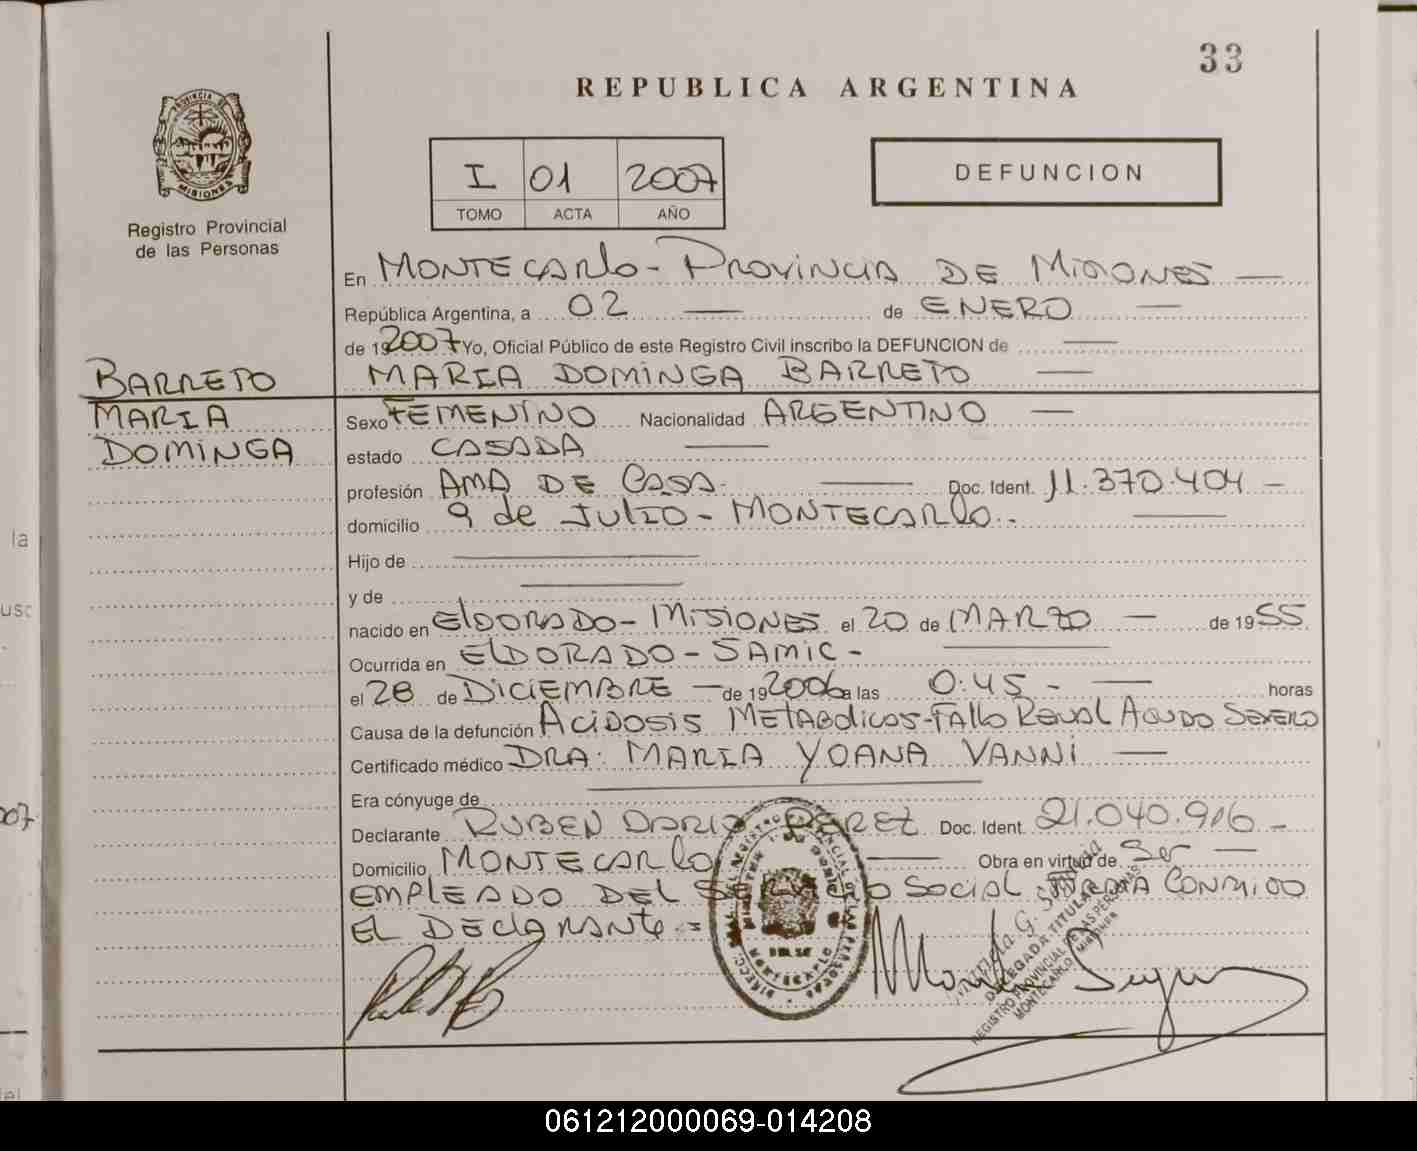 33
REPUBLICA ARGENTINA
PROVINCIA DE
MISIONES
Registro Provincial
de las Personas
I 01 2007
TOMO ACTA AÑO
DEFUNCION
En MONTECARLO - PROVINCIA DE MISIONES —
República Argentina, a 02 — de ENERO —
de 192007 Yo, Oficial Público de este Registro Civil inscribo la DEFUNCION de —
BARRETO MARIA DOMINGA BARRETO —
MARIA Sexo FEMENINO Nacionalidad ARGENTINO —
DOMINGA estado CASADA —
profesión AMA DE CASA. — Doc. Ident. 11.370.404 -
domicilio 9 de JULIO - MONTECARLO.- —
Hijo de —
y de —
nacido en ELDORADO - MISIONES el 20 de MARZO — de 1955
Ocurrida en ELDORADO - SAMIC - —
el 28 de DICIEMBRE — de 192006 a las 0:45 - — horas
Causa de la defunción ACIDOSIS METABOLICOS - FALLO RENAL AGUDO SEVERO
Certificado médico DRA: MARIA YOANA VANNI —
Era cónyuge de —
Declarante RUBEN DARIO PEREZ Doc. Ident. 21.040.916 -
Domicilio MONTECARLO — Obra en virtud de Ser —
EMPLEADO DEL SOCIAL FIRMA CONMIGO
EL DECLARANTE.=
MONTECARLO
DELEGADA TITULAR
REGISTRO PROVINCIAL DE LAS PERSONAS
MONTECARLO MISIONES
la
007
061212000069-014208